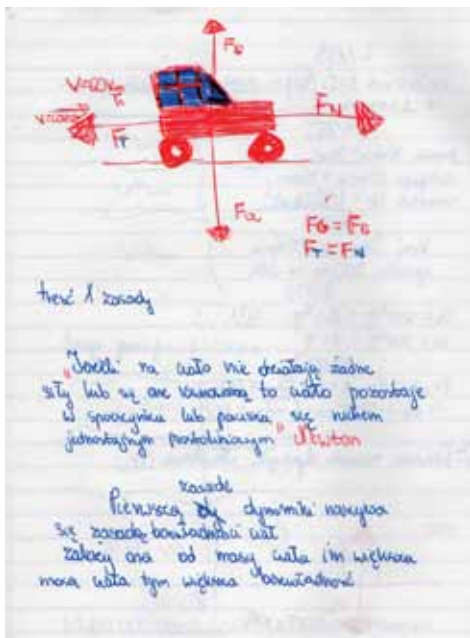 FR
V=60
FN
FT
FG
FG = FR
FT = FN
treść I zasady
"Jeżeli na ciało nie działają żadne
siły lub się one równoważą to ciało pozostaje
w spoczynku lub porusza się ruchem
jednostajnym prostoliniowym" Newton
zasadę
Pierwszą dynamiki nazywa
się zasadą bezwładności ciał
zależy ona od masy ciała im większa
masa ciała tym większa bezwładność